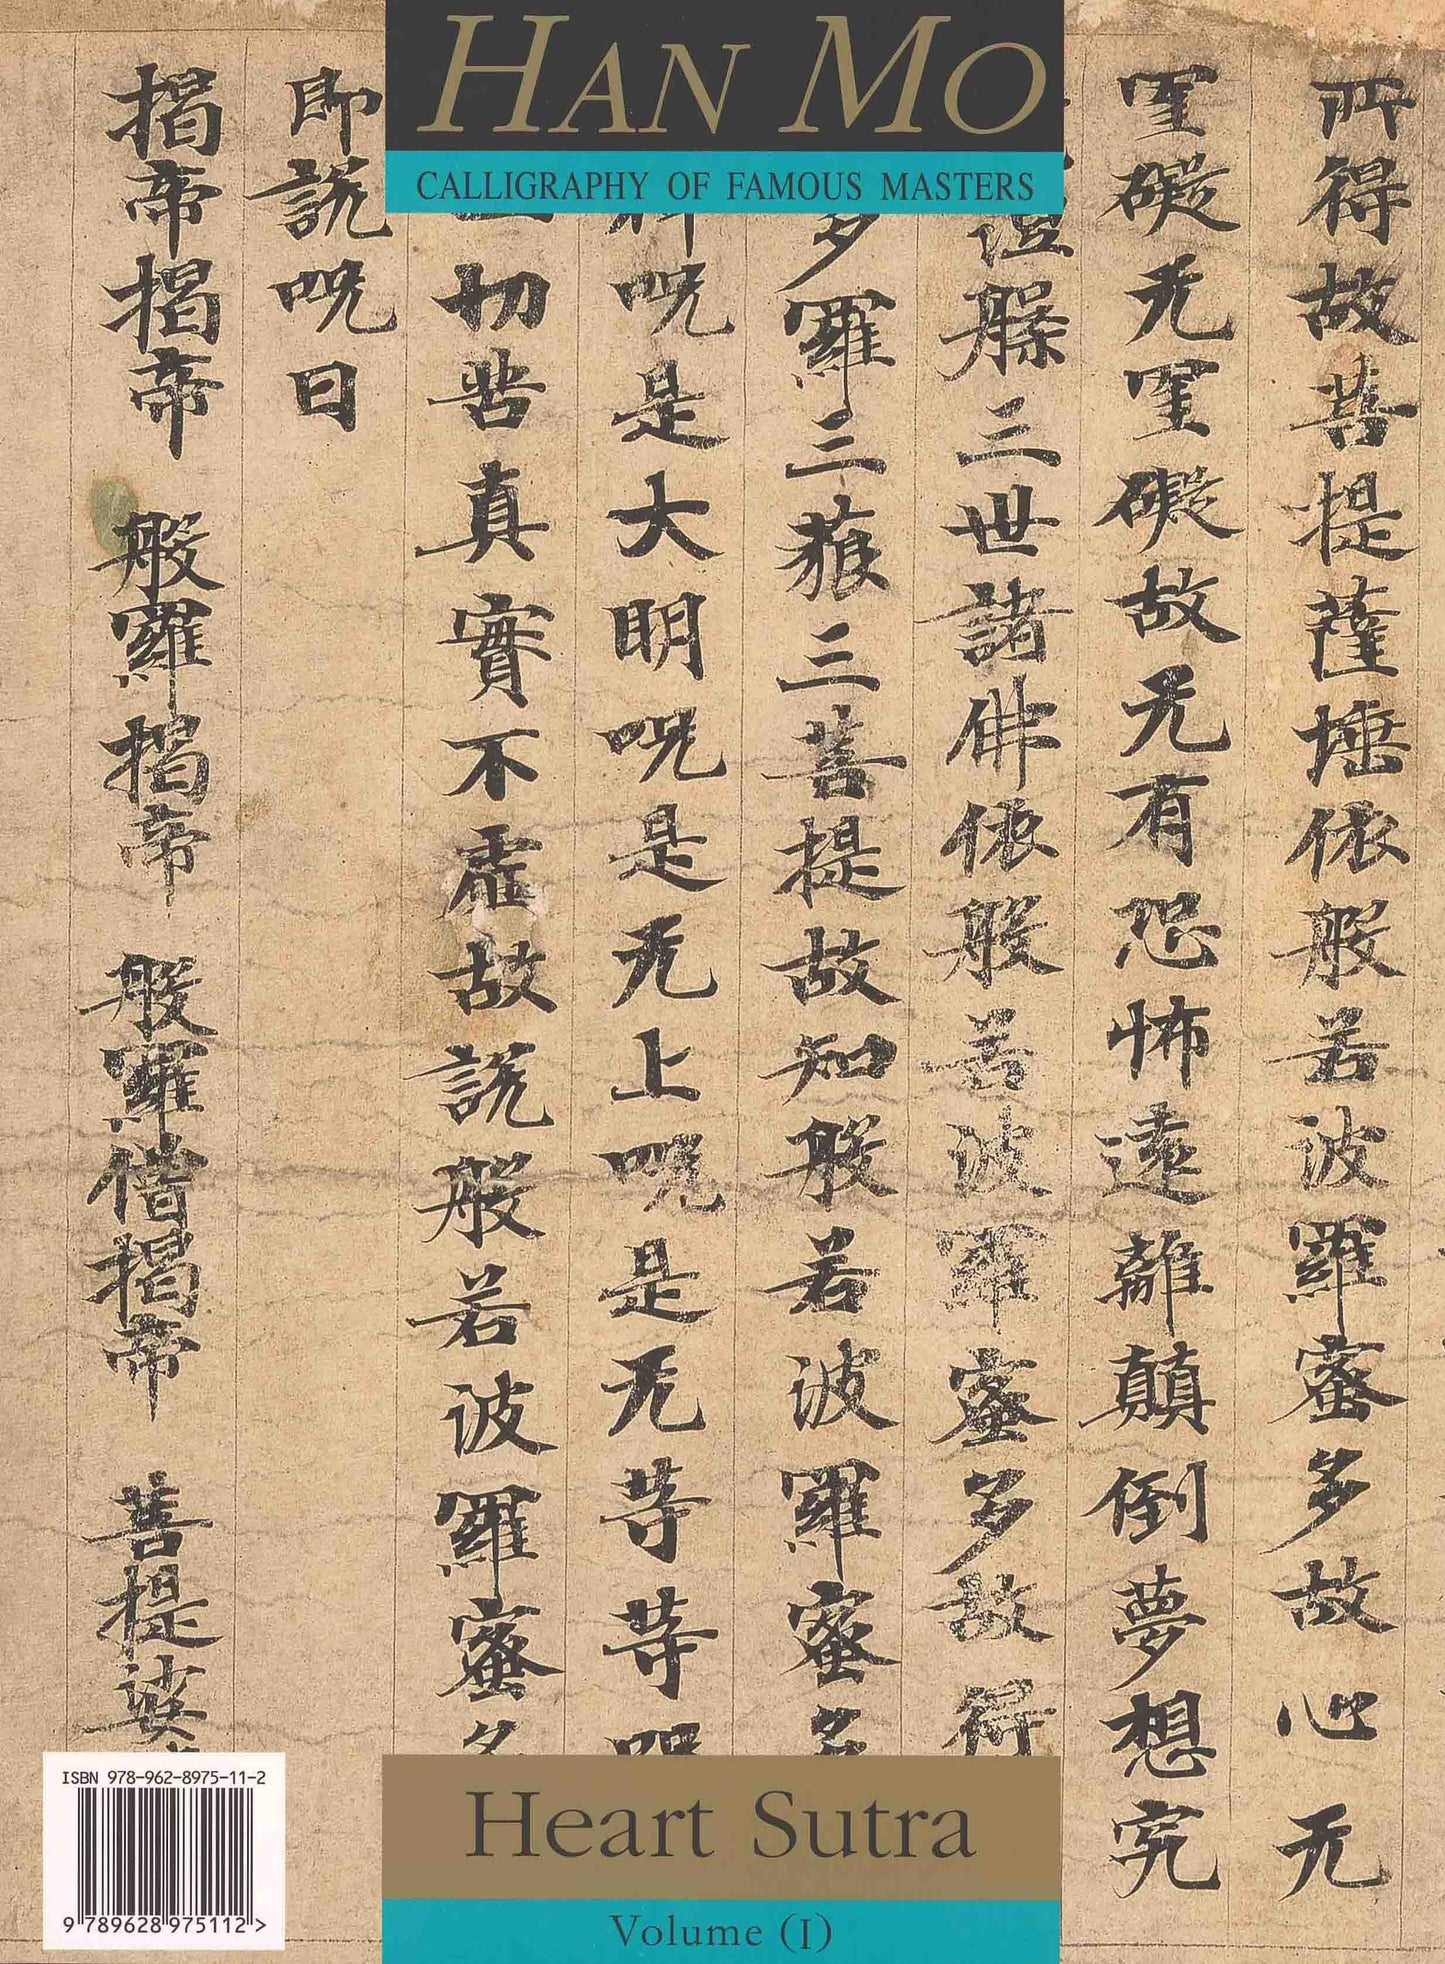 HAN MO
CALLIGRAPHY OF FAMOUS MASTERS
所得故菩提薩埵依般若波羅蜜多故心无
罣礙无罣礙故无有恐怖遠離顛倒夢想究
槃三世諸佛依般若波羅蜜多故得
多羅三藐三菩提故知般若波羅蜜多
呪是大明呪是无上呪是无等等呪
一切苦真實不虛故說般若波羅蜜多
即說呪曰
揭帝揭帝 般羅揭帝 般羅僧揭帝 菩提娑
ISBN 978-962-8975-11-2
9 789628 975112 >
Heart Sutra
Volume (I)